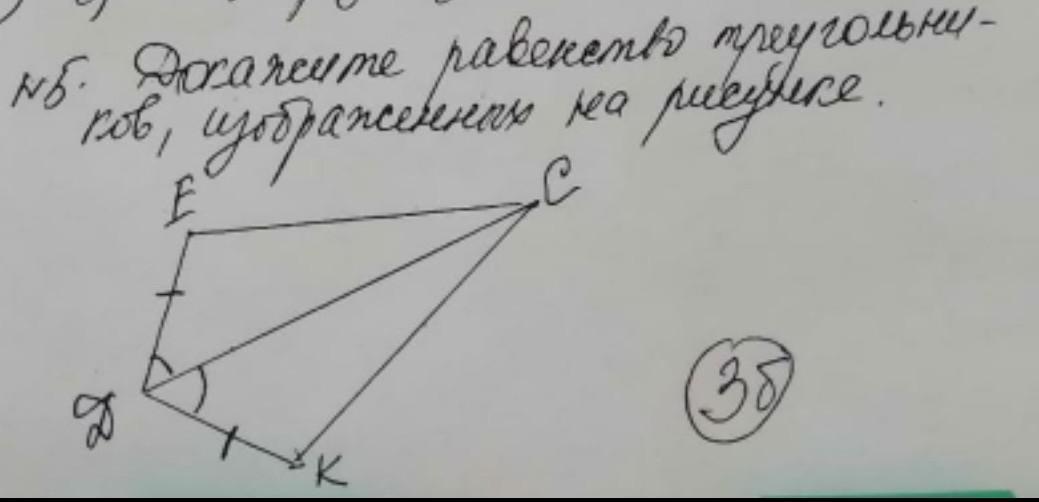 №5. Докажите равенство треугольни-
ков, изображенных на рисунке.
E
C
Д
K
3б